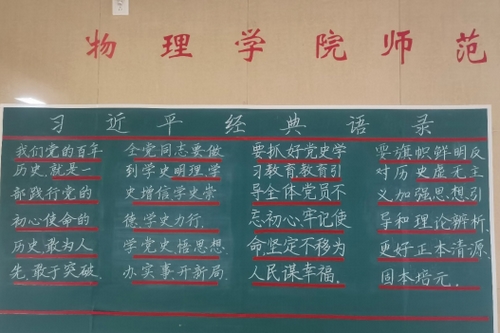 物理学院师范
习近平经典语录
我们党的百年
历史,就是一
部践行党的
初心使命的
历史敢为人
先,敢于突破.
全党同志要做
到学史明理学
史增信学史崇
德学史力行
学党史悟思想
办实事开新局.
要抓好党史学
习教育教育引
导全体党员不
忘初心牢记使
命坚定不移为
人民谋幸福.
要旗帜鲜明反
对历史虚无主
义加强思想引
导和理论辨析.
更好正本清源
固本培元.